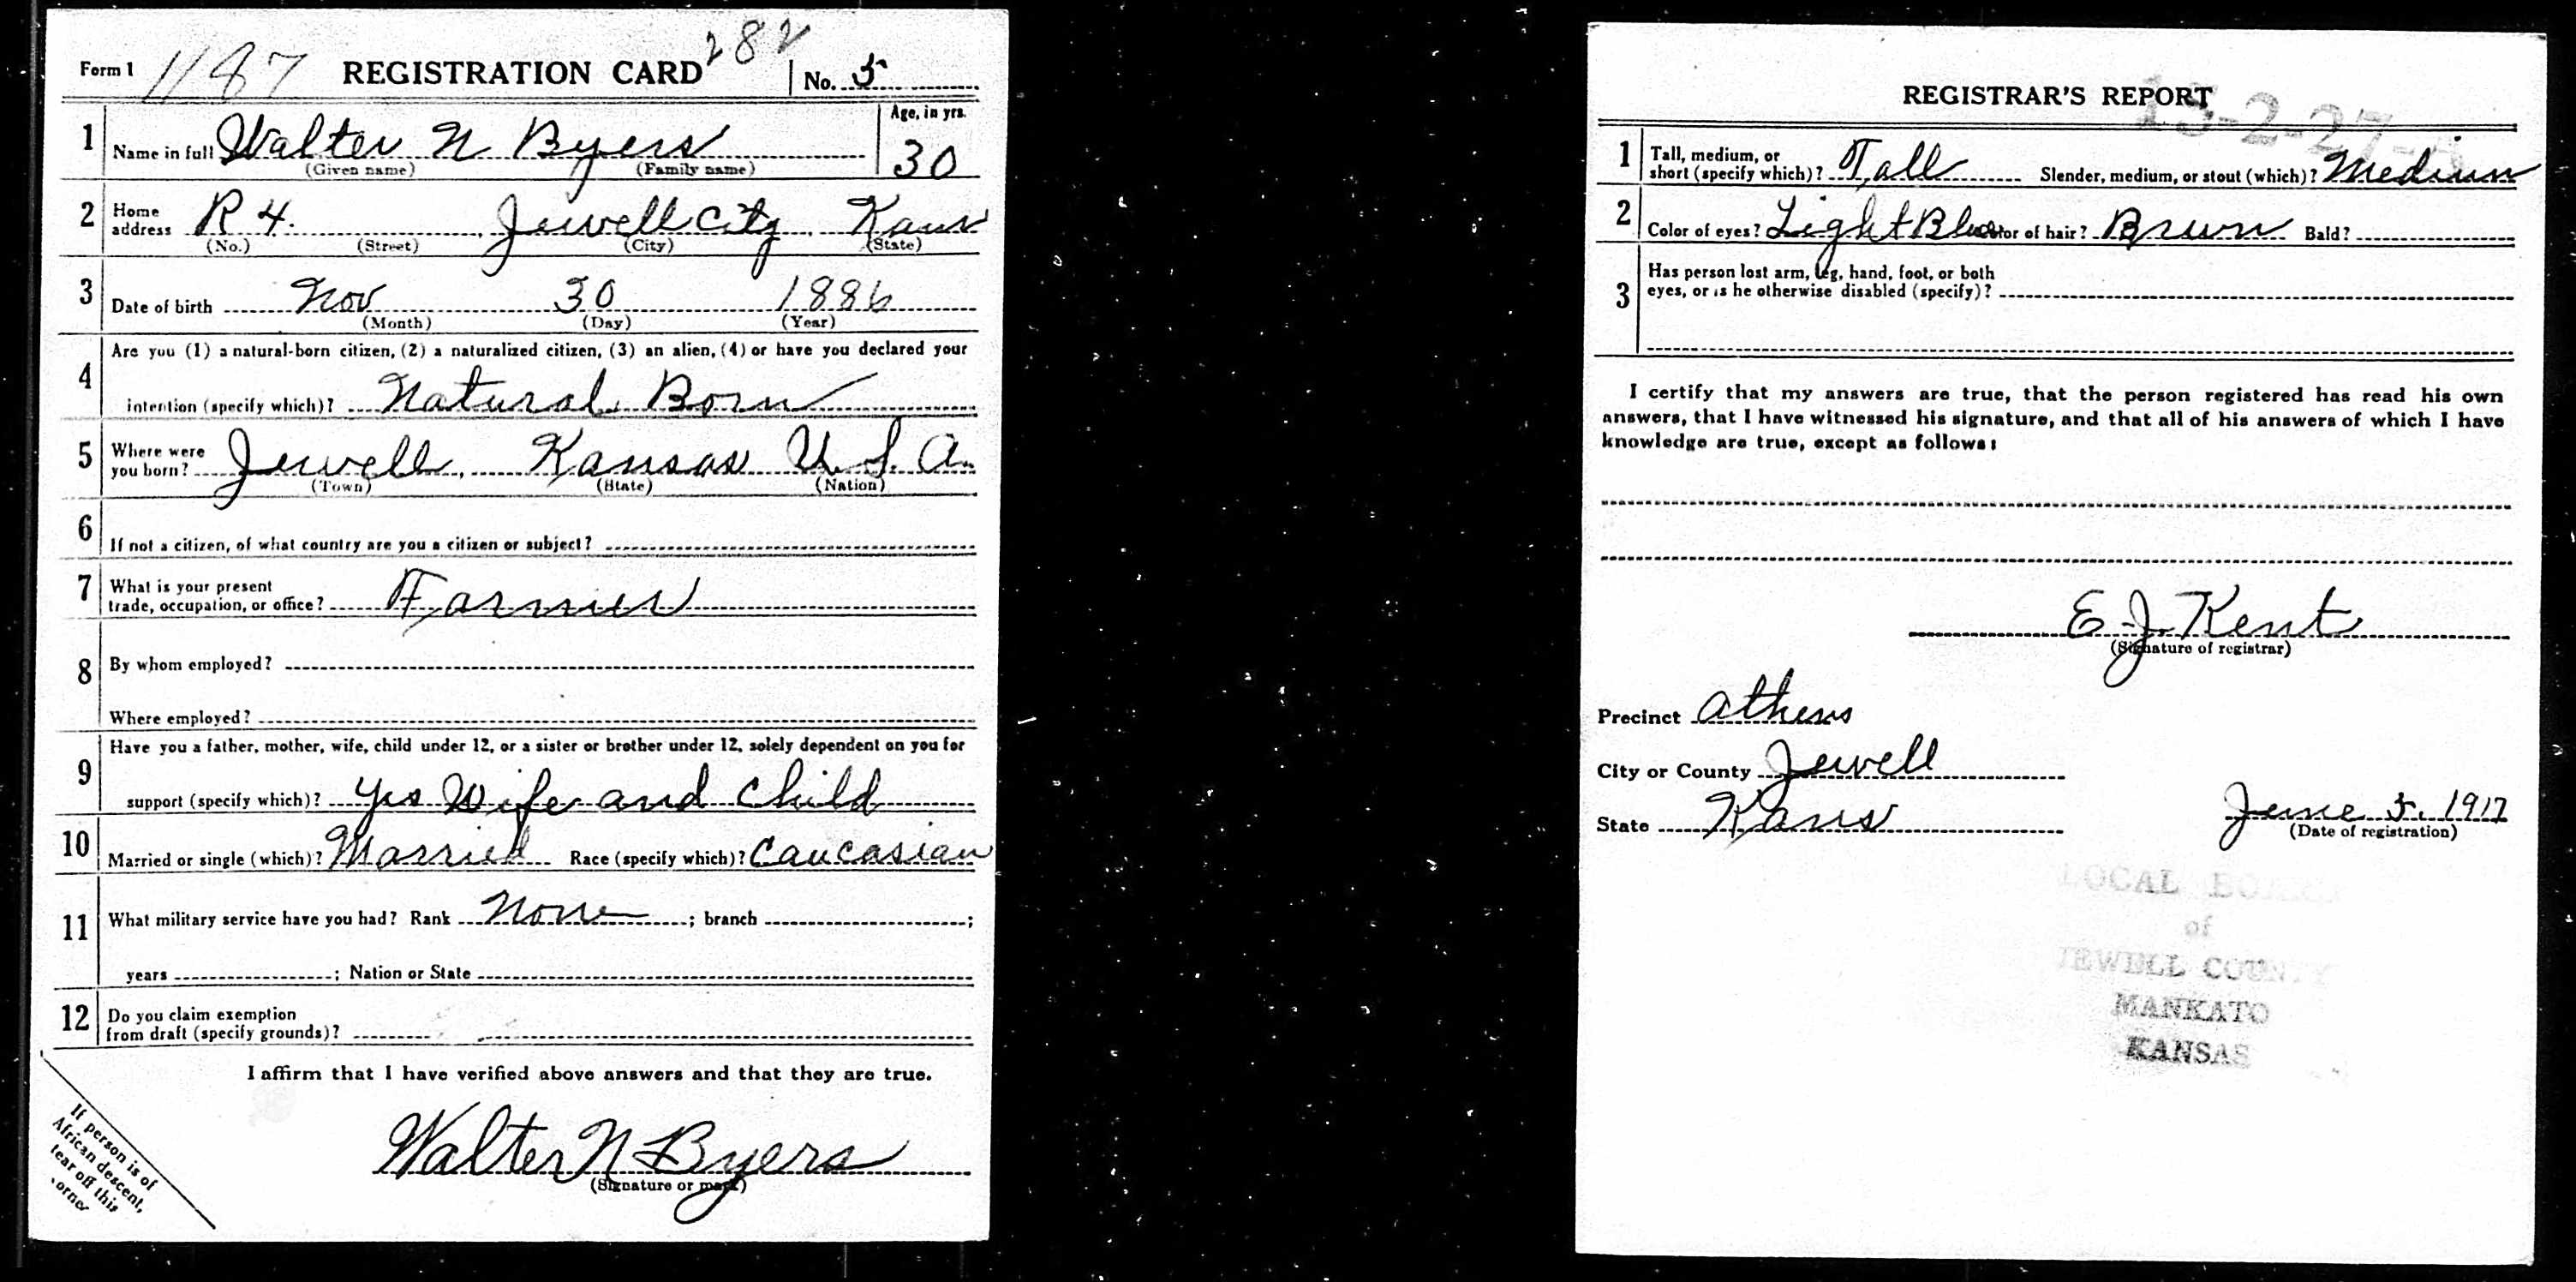 Form 1 1187 REGISTRATION CARD 282 No. 5
1 Name in full Walter N Byers Age, in yrs. 30
(Given name) (Family name)
2 Home address R 4. Jewell City, Kans
(No.) (Street) (City) (State)
3 Date of birth Nov 30 1886
(Month) (Day) (Year)
4 Are you (1) a natural-born citizen, (2) a naturalized citizen, (3) an alien, (4) or have you declared your
intention (specify which)? Natural Born
5 Where were you born? Jewell, Kansas U. S. A.
(Town) (State) (Nation)
6 If not a citizen, of what country are you a citizen or subject?
7 What is your present
trade, occupation, or office? Farmer
8 By whom employed?
Where employed?
9 Have you a father, mother, wife, child under 12, or a sister or brother under 12, solely dependent on you for
support (specify which)? Yes Wife and Child
10 Married or single (which)? Married Race (specify which)? Caucasian
11 What military service have you had? Rank None ; branch ;
years ; Nation or State
12 Do you claim exemption
from draft (specify grounds)?
I affirm that I have verified above answers and that they are true.
Walter N Byers
(Signature or mark)
If person is of
African descent,
tear off this
corner
REGISTRAR'S REPORT
15-2-27-A
1 Tall, medium, or
short (specify which)? Tall Slender, medium, or stout (which)? Medium
2 Color of eyes? Light Blue Color of hair? Brown Bald?
3 Has person lost arm, leg, hand, foot, or both
eyes, or is he otherwise disabled (specify)?
I certify that my answers are true, that the person registered has read his own
answers, that I have witnessed his signature, and that all of his answers of which I have
knowledge are true, except as follows:
E. J. Kent
(Signature of registrar)
Precinct Athens
City or County Jewell
State Kans June 5. 1917
(Date of registration)
LOCAL BOARD
of
JEWELL COUNTY
MANKATO
KANSAS